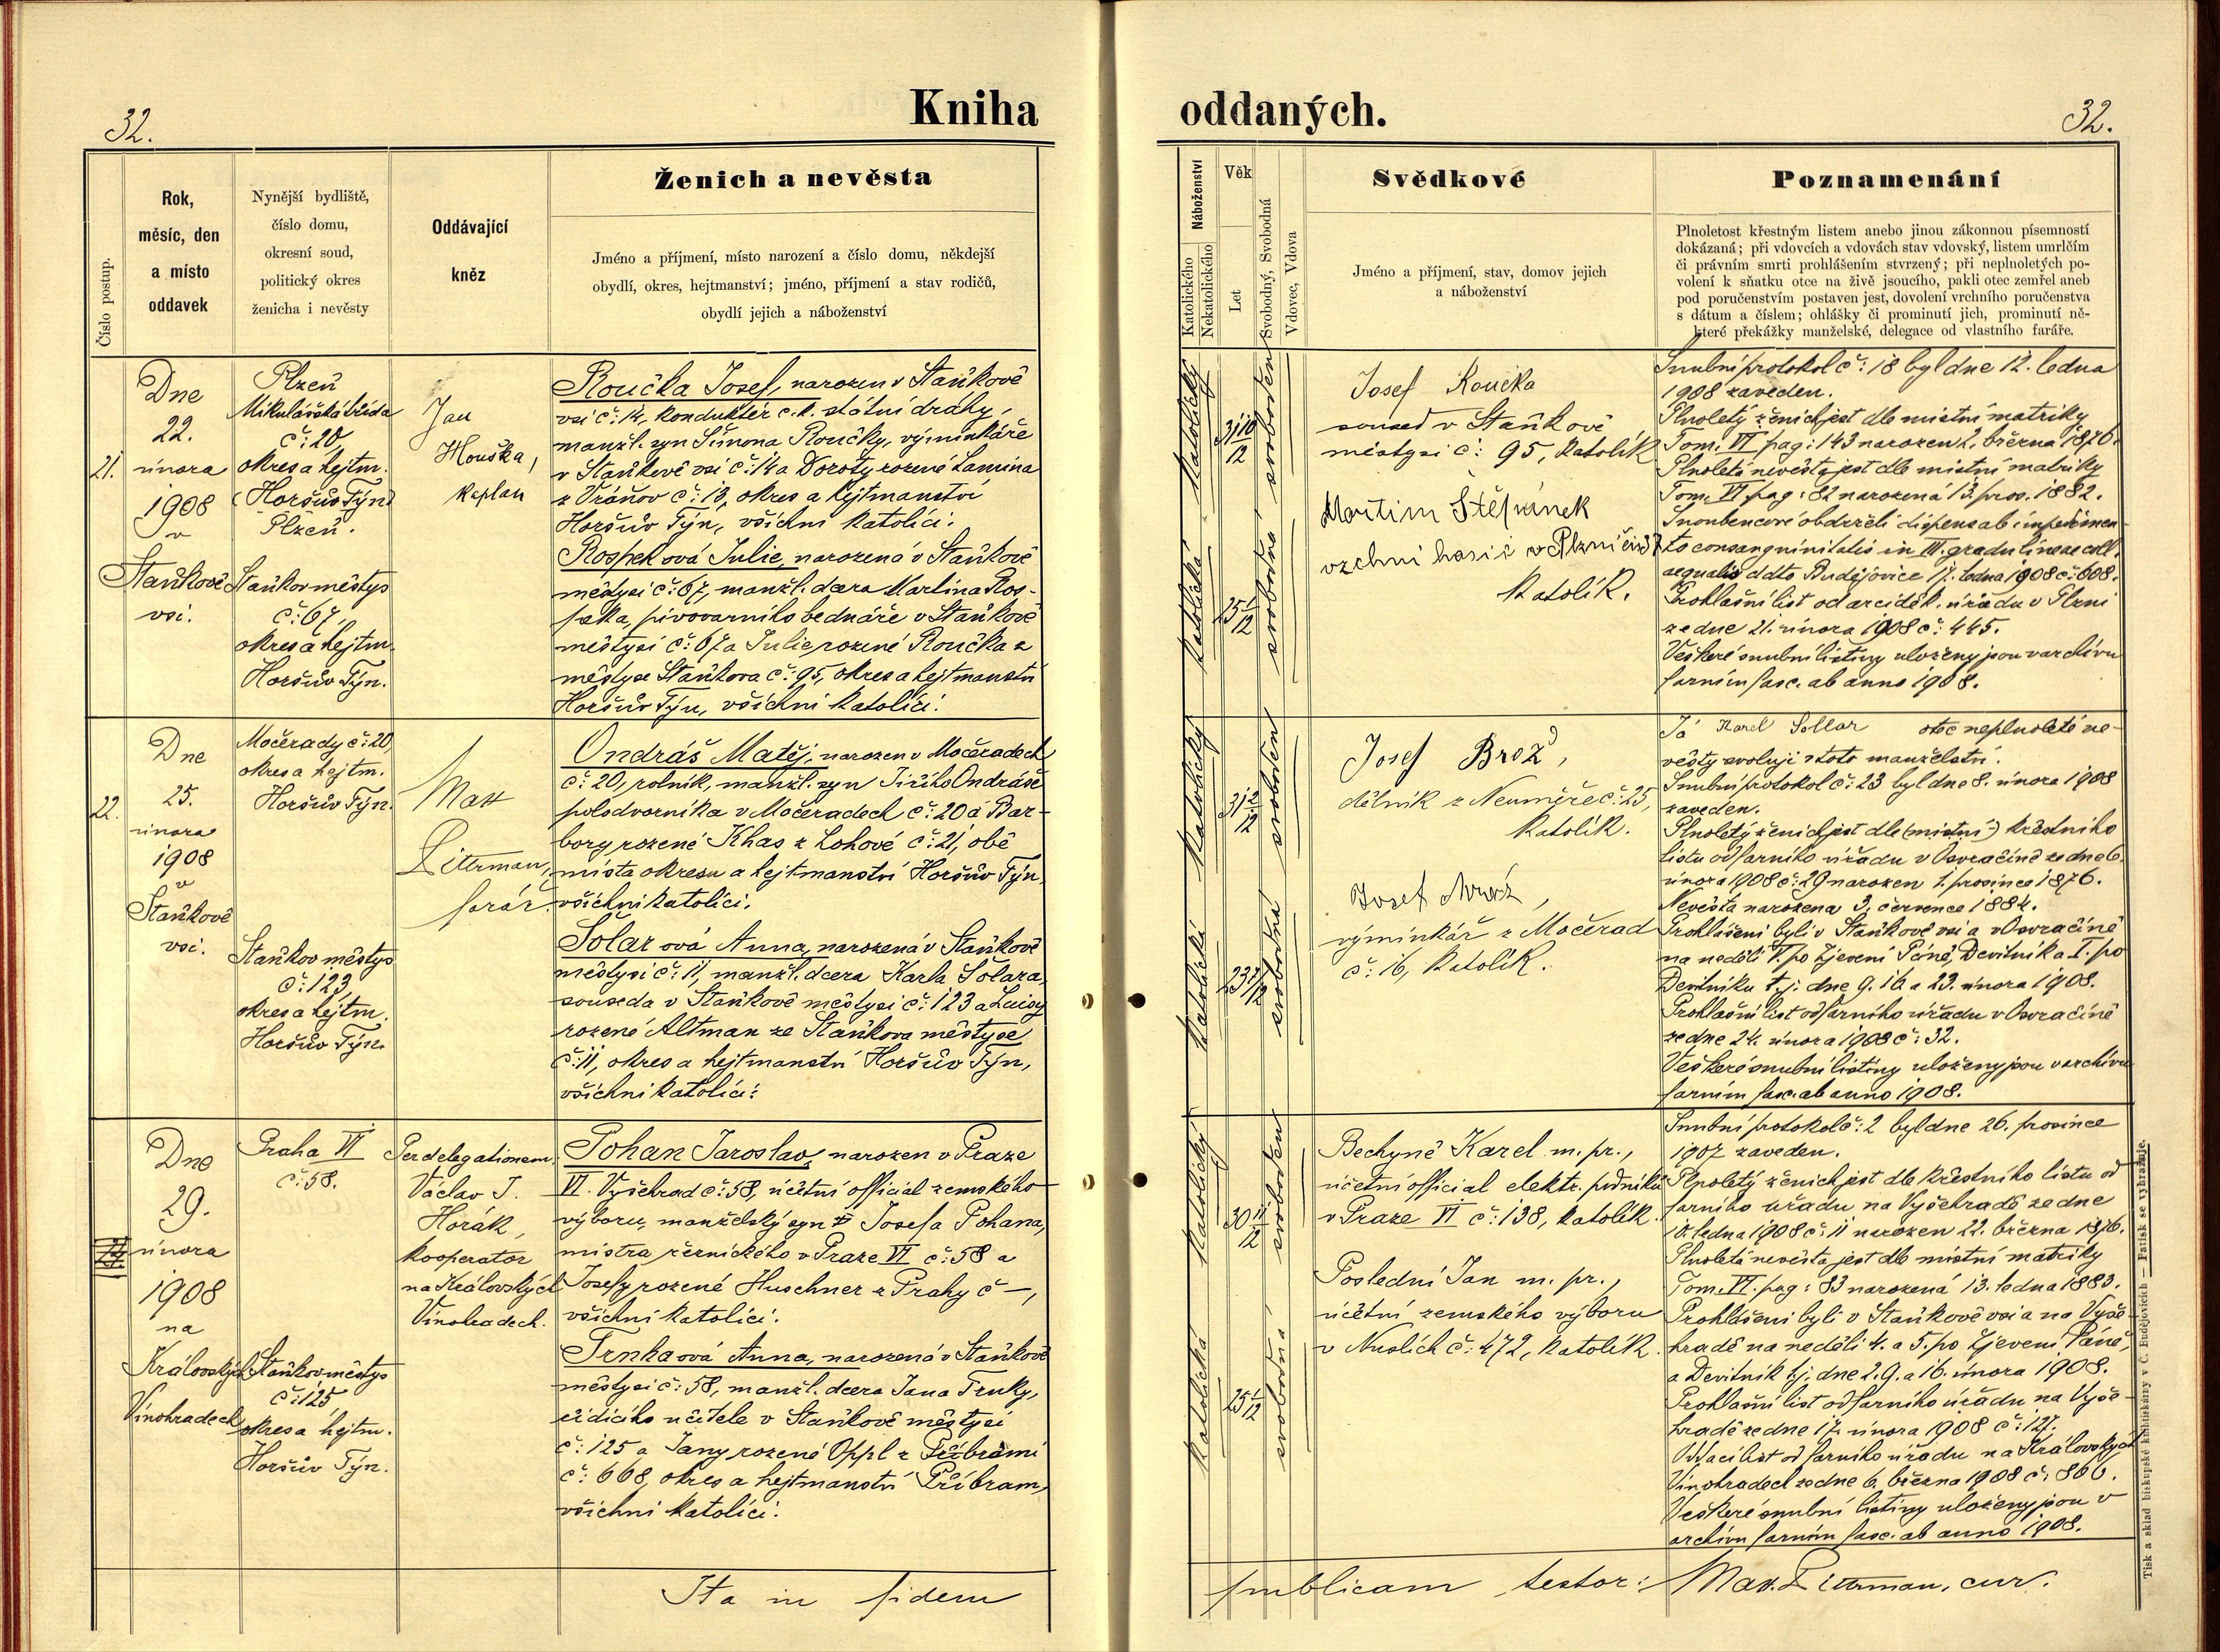 32.
Kniha
oddaných.
32.
Číslo postup.
Rok,
měsíc, den
a místo
oddavek
Nynější bydliště,
číslo domu,
okresní soud,
politický okres
ženicha i nevěsty
Oddávající
kněz
Ženich a nevěsta
Jméno a příjmení, místo narození a číslo domu, někdejší
obydlí, okres, hejtmanství; jméno, příjmení a stav rodičů,
obydlí jejich a náboženství
Náboženství
Katolického
Nekatolického
Věk
Let
Svobodný, Svobodná
Vdovec, Vdova
Svědkové
Jméno a příjmení, stav, domov jejich
a náboženství
Poznamenání
Plnoletost křestným listem anebo jinou zákonnou písemností
dokázaná; při vdovcích a vdovách stav vdovský, listem umrlčím
či právním smrti prohlášením stvrzený; při neplnoletých po-
volení k sňatku otce na živě jsoucího, pakli otec zemřel aneb
pod poručenstvím postaven jest, dovolení vrchního poručenstva
s dátum a číslem; ohlášky či prominutí jich, prominutí ně-
které překážky manželské, delegace od vlastního faráře.
21.
Dne
22.
února
1908
v
Staňkově
vsi.
Plzeň
Mikulášská třída
č: 20,
okres a hejtm.
(Horšův Týn)
Plzeň.
Staňkov městys
č: 67,
okres a hejtm.
Horšův Týn.
Jan
Houška,
kaplan
Roučka Josef, narozen v Staňkově
vsi č: 14, konduktér c. k. státní dráhy,
manžl. syn Šimona Roučky, výminkáře
v Staňkově vsi č: 14 a Doroty rozené Lamina
z Vráňov č: 13, okres a hejtmanství
Horšův Týn, všichni katolíci.
Rospeková Julie, narozená v Staňkově
městysi č: 67, manžl. dcera Martina Ros-
peka, pivovarního bednáře v Staňkově
městysi č: 67 a Julie rozené Roučka z
městyse Staňkova č: 95, okres a hejtmanství
Horšův Týn, všichni katolíci.
katolický
31 10/12
svoboden
katolická
25 2/12
svobodná
Josef Roučka
soused v Staňkově
městysi č: 95, katolík
Martin Štěpánek
vrchní hasič v Plzni
katolík.
Snubní protokol č: 18 byl dne 12. ledna
1908 zaveden.
Plnoletý ženich jest dle místní matriky
Tom. VI pag: 143 narozen 2. března 1876.
Plnoletá nevěsta jest dle místní matriky
Tom. VI pag: 82 narozená 13. pros. 1882.
Snoubencové obdrželi dispens ab impedimen-
to consanguinitatis in III. gradu lineae coll.
aequalis ddto Budějovice 17. ledna 1908 č: 608.
Prohlašní list od arciděk. úřadu v Plzni
ze dne 21. února 1908 č: 445.
Veškeré snubní listiny uloženy jsou v archivu
farním fasc. ab anno 1908.
22.
Dne
25.
února
1908
v
Staňkově
vsi.
Močerady č: 20,
okres a hejtm.
Horšův Týn.
Staňkov městys
č: 123,
okres a hejtm.
Horšův Týn.
Max
Litterman,
farář.
Ondráš Matěj, narozen v Močeradech
č: 20, rolník, manžl. syn Jiřího Ondráše
polodvorníka v Močeradech č: 20 a Bar-
bory rozené Khas z Lohové č: 21, obě
místa okresu a hejtmanství Horšův Týn,
všichni katolíci.
Šolarová Anna, narozená v Staňkově
městysi č: 11, manžl. dcera Karla Šolara,
souseda v Staňkově městysi č: 123 a Luisy
rozené Altman ze Staňkova městyse
č: 11, okres a hejtmanství Horšův Týn,
všichni katolíci.
katolický
31 2/12
svoboden
katolická
23 7/12
svobodná
Josef Brož,
dělník z Neuměře č: 25,
katolík.
Josef
výminkář z Močerad
č: 16, katolík.
Já Karel Sollar otec neplnoleté ne-
věsty svoluji v toto manželství.
Snubní protokol č: 23 byl dne 8. února 1908
zaveden.
Plnoletý ženich jest dle (místní) křestního
listu od farního úřadu v Osvračíně ze dne 6.
února 1908 č: 29 narozen 1. prosince 1876.
Nevěsta narozena 3. července 1884.
Prohlášeni byli v Staňkově vsi a v Osvračíně
na neděli V. po Zjevení Páně, Devítník a I. po
Devítníku t. j. dne 9. 16. a 23. února 1908.
Prohlašní list od farního úřadu v Osvračíně
ze dne 24. února 1908 č: 32.
Veškeré snubní listiny uloženy jsou v archivu
farním fasc. ab anno 1908.
Dne
29.
února
1908
na
Královských
Vinohradech
Praha VI
č: 58.
Staňkov městys
č: 125,
okres a hejtm.
Horšův Týn.
Per delegationem
Václav J.
Horák,
kooperator
na Královských
Vinohradech.
Pohan Jaroslav, narozen v Praze
VI. Vyšehrad č: 58, účetní official zemského
výboru, manželský syn Josefa Pohana,
mistra řeznického v Praze VI č: 58 a
Josefy rozené Huschner z Prahy č –,
všichni katolíci.
Trnkaová Anna, narozená v Staňkově
městysi č: 58, manžl. dcera Jana Trnky,
řídícího učitele v Staňkově městysi
č: 125 a Jany rozené Oppl z Příbrami
č: 668, okres a hejtmanství Příbram,
všichni katolíci.
katolický
30 11/12
svoboden
katolická
25 1/12
svobodná
Bechyně Karel m. pr.,
účetní official elektr. podniků
v Praze VI č: 138, katolík.
Poslední Jan m. pr.,
účetní zemského výboru
v Nuslích č: 472, katolík.
Snubní protokol č: 2 byl dne 26. prosince
1907 zaveden.
Plnoletý ženich jest dle křestního listu od
farního úřadu na Vyšehradě ze dne
18. ledna 1908 č: 11 narozen 22. března 1876.
Plnoletá nevěsta jest dle místní matriky
Tom. VI. pag: 83 narozená 13. ledna 1883.
Prohlášeni byli v Staňkově vsi a na Vyše-
hradě na neděli 4. a 5. po Zjevení Páně,
a Devítník t. j. dne 2. 9. a 16. února 1908.
Prohlašní list od farního úřadu na Vyše-
hradě ze dne 17. února 1908 č: 127.
Oddací list od farního úřadu na Královských
Vinohradech ze dne 6. března 1908 č: 866.
Veškeré snubní listiny uloženy jsou v
archivu farním fasc. ab anno 1908.
Ita in fidem
publicam testor: Max. Litterman, cur.
Tisk a sklad biskupské knihtiskárny v Č. Budějovicích — Patisk se vyhražuje.